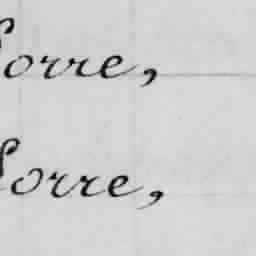 Sorre,
Sorre,